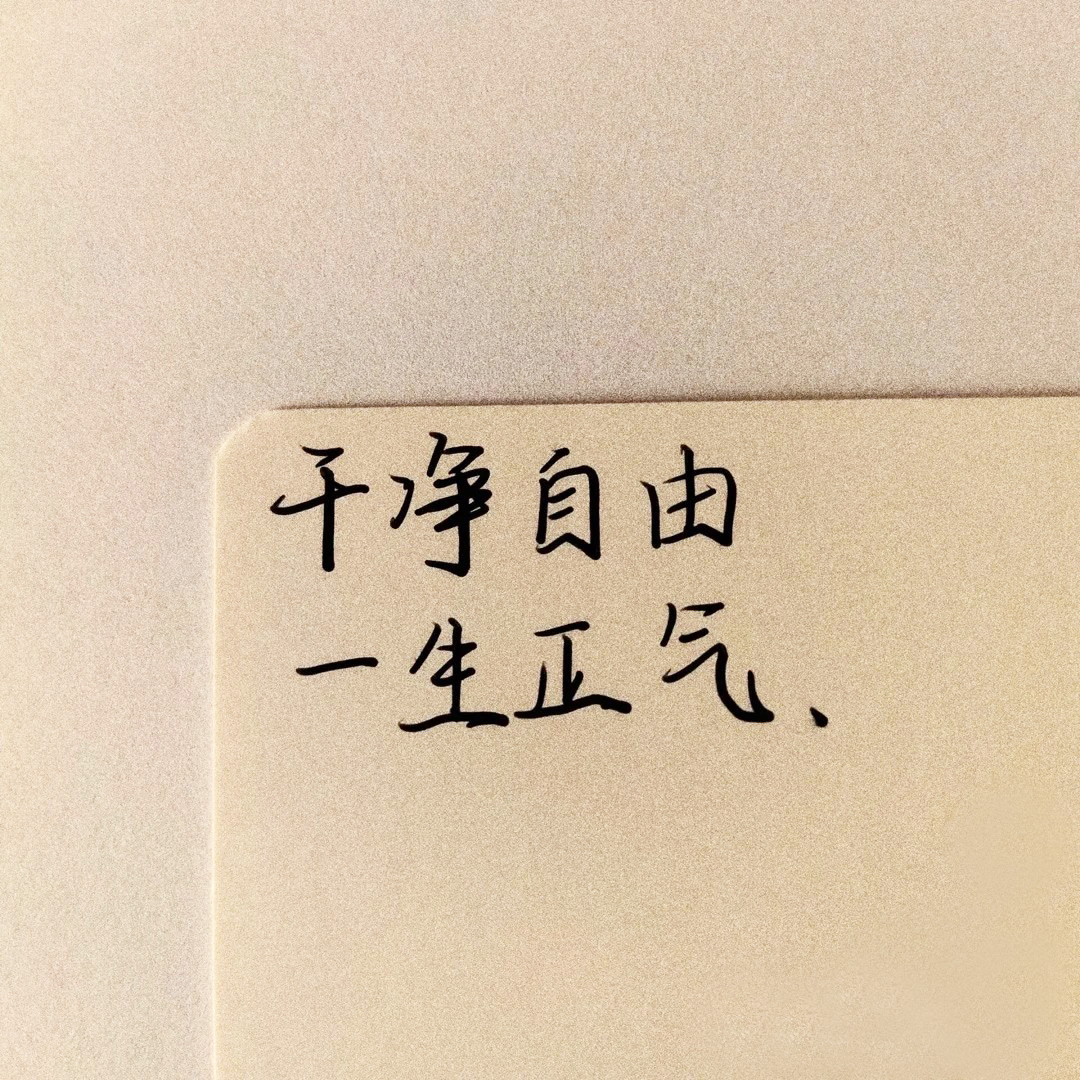 干净自由
一生正气、